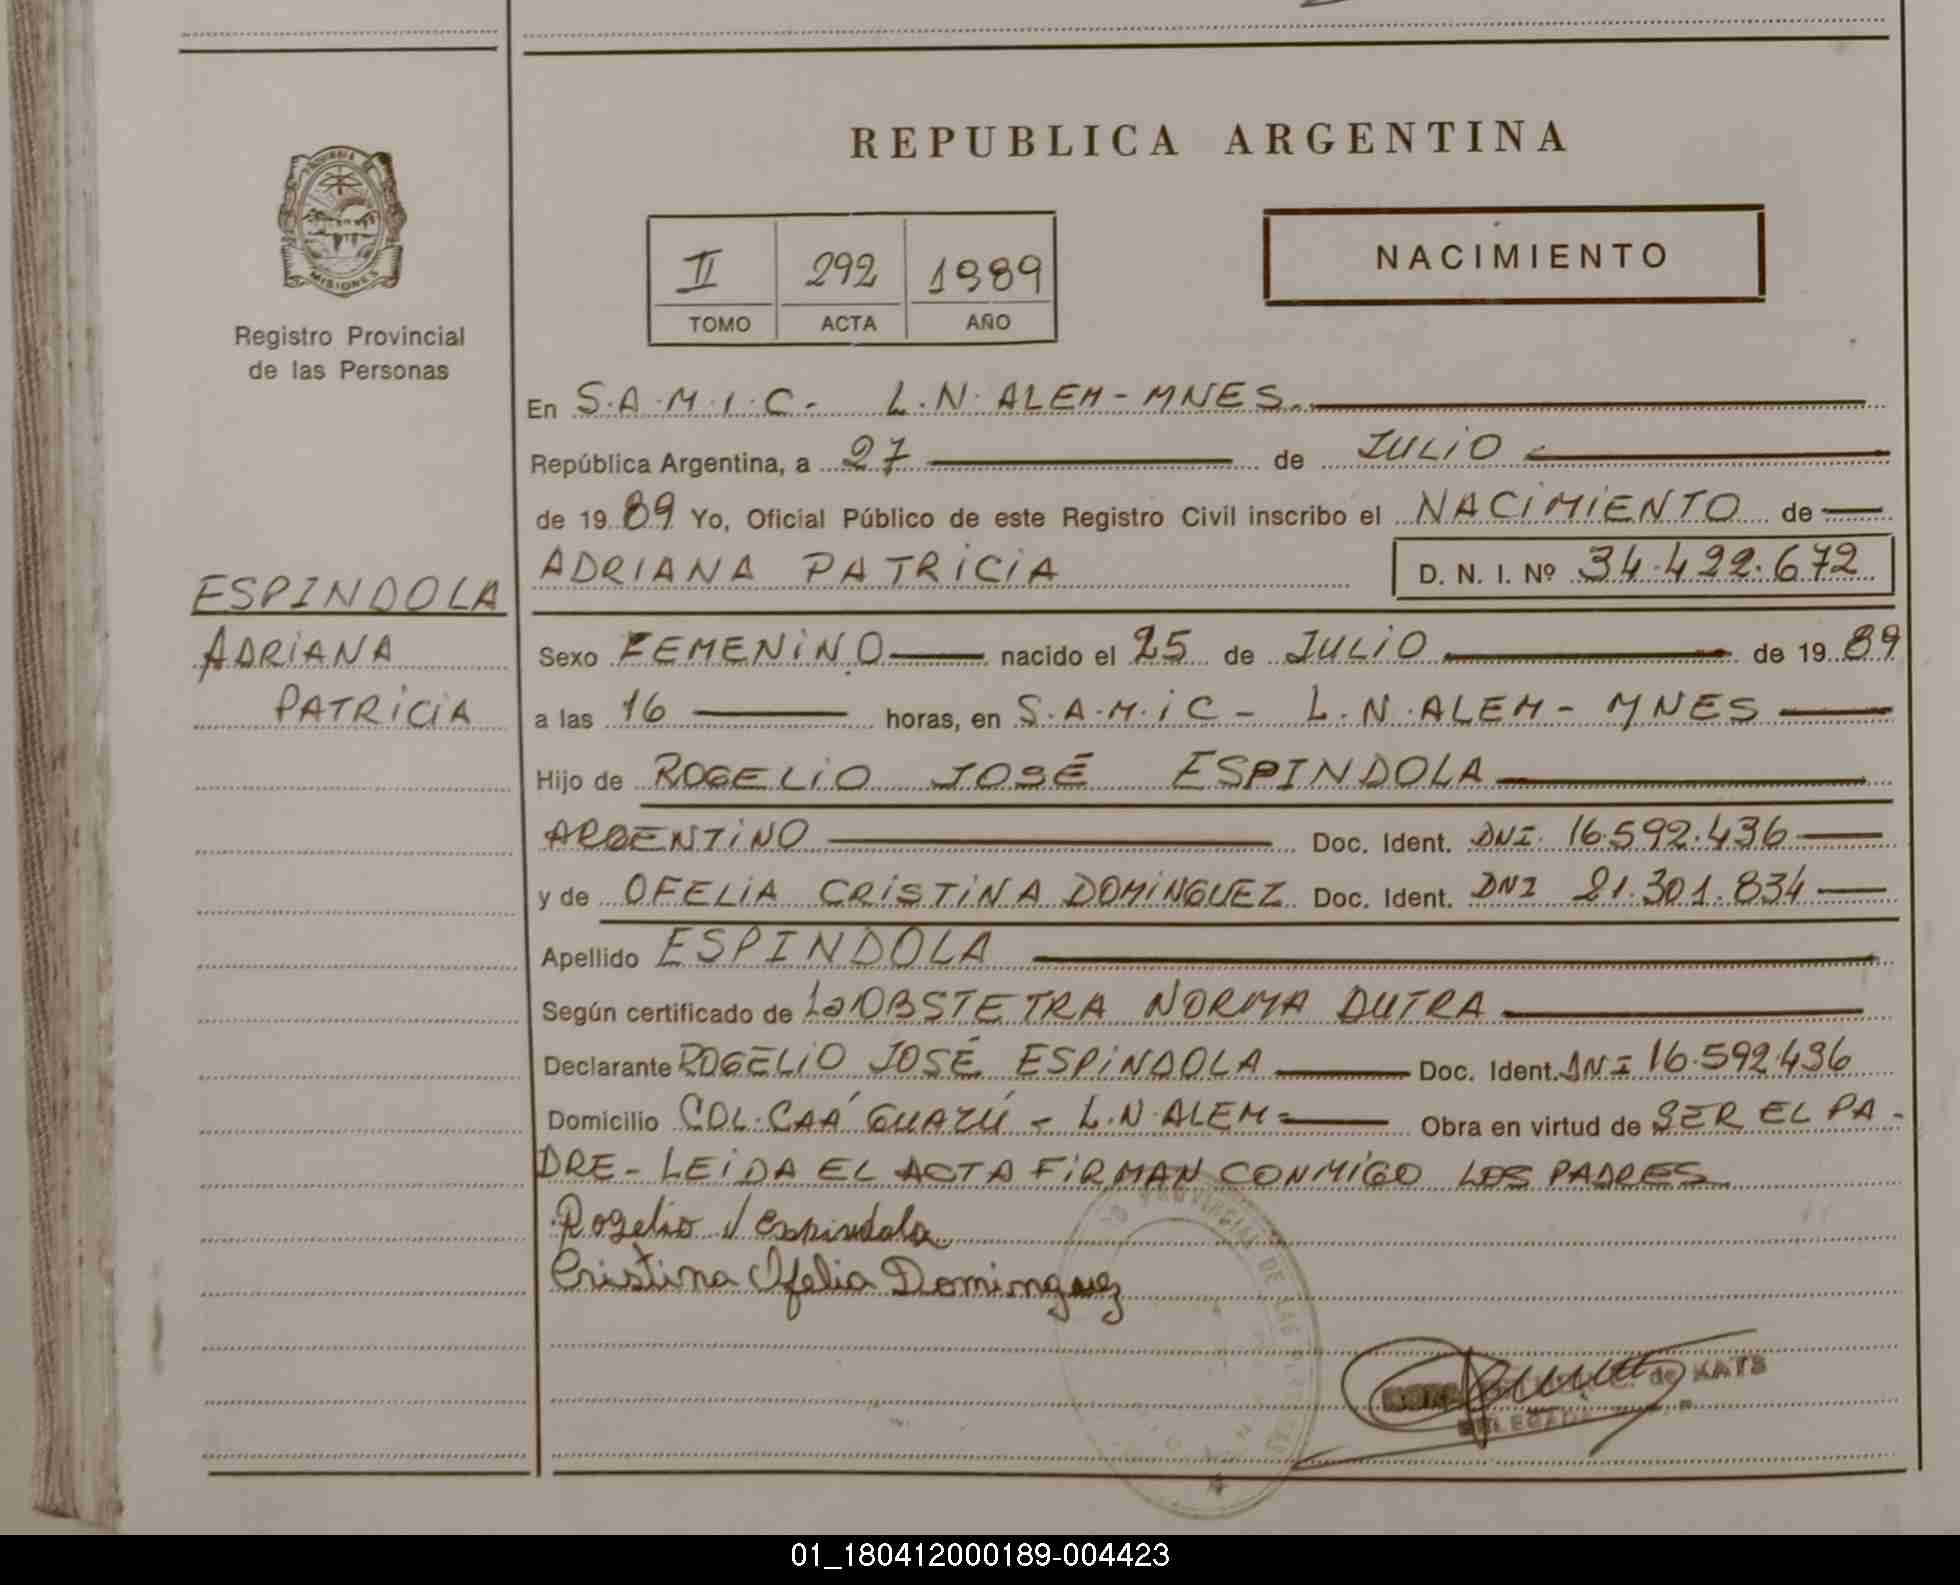 REPUBLICA ARGENTINA
MISIONES
Registro Provincial
de las Personas
II 292 1989
TOMO ACTA AÑO
NACIMIENTO
En S.A.M.I.C. - L.N. ALEM - MNES.
República Argentina, a 27 de JULIO
de 1989 Yo, Oficial Público de este Registro Civil inscribo el NACIMIENTO de
ADRIANA PATRICIA D. N. I. Nº 34.422.672
ESPINDOLA
ADRIANA
PATRICIA
Sexo FEMENINO nacido el 25 de JULIO de 1989
a las 16 horas, en S.A.M.I.C - L.N. ALEM - MNES
Hijo de ROGELIO JOSÉ ESPINDOLA
ARGENTINO Doc. Ident. DNI. 16.592.436
y de OFELIA CRISTINA DOMINGUEZ Doc. Ident. DNI 21.301.834
Apellido ESPINDOLA
Según certificado de La OBSTETRA NORMA DUTRA
Declarante ROGELIO JOSÉ ESPINDOLA Doc. Ident. DNI 16.592.436
Domicilio COL. CAÁ GUAZÚ - L.N. ALEM Obra en virtud de SER EL PA-
DRE - LEIDA EL ACTA FIRMAN CONMIGO LOS PADRES
Rogelio J Espindola
Cristina Ofelia Dominguez
de KATS
01_180412000189-004423